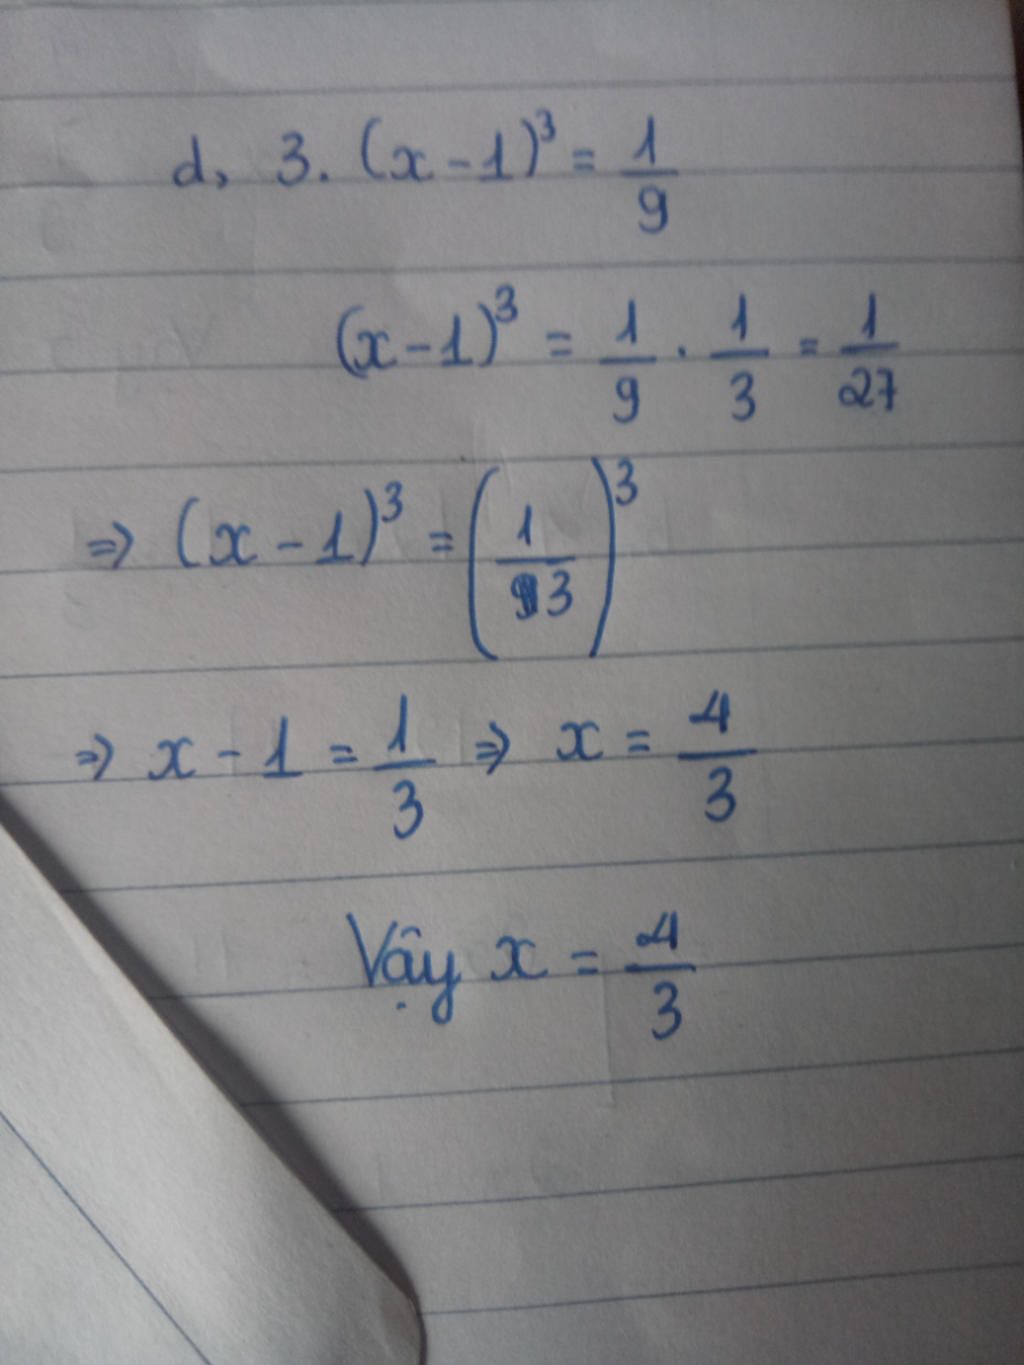 d, 3. (x - 1)³ = 1/9
(x - 1)³ = 1/9 . 1/3 = 1/27
⇒ (x - 1)³ = (1/3)³
⇒ x - 1 = 1/3 ⇒ x = 4/3
Vậy x = 4/3